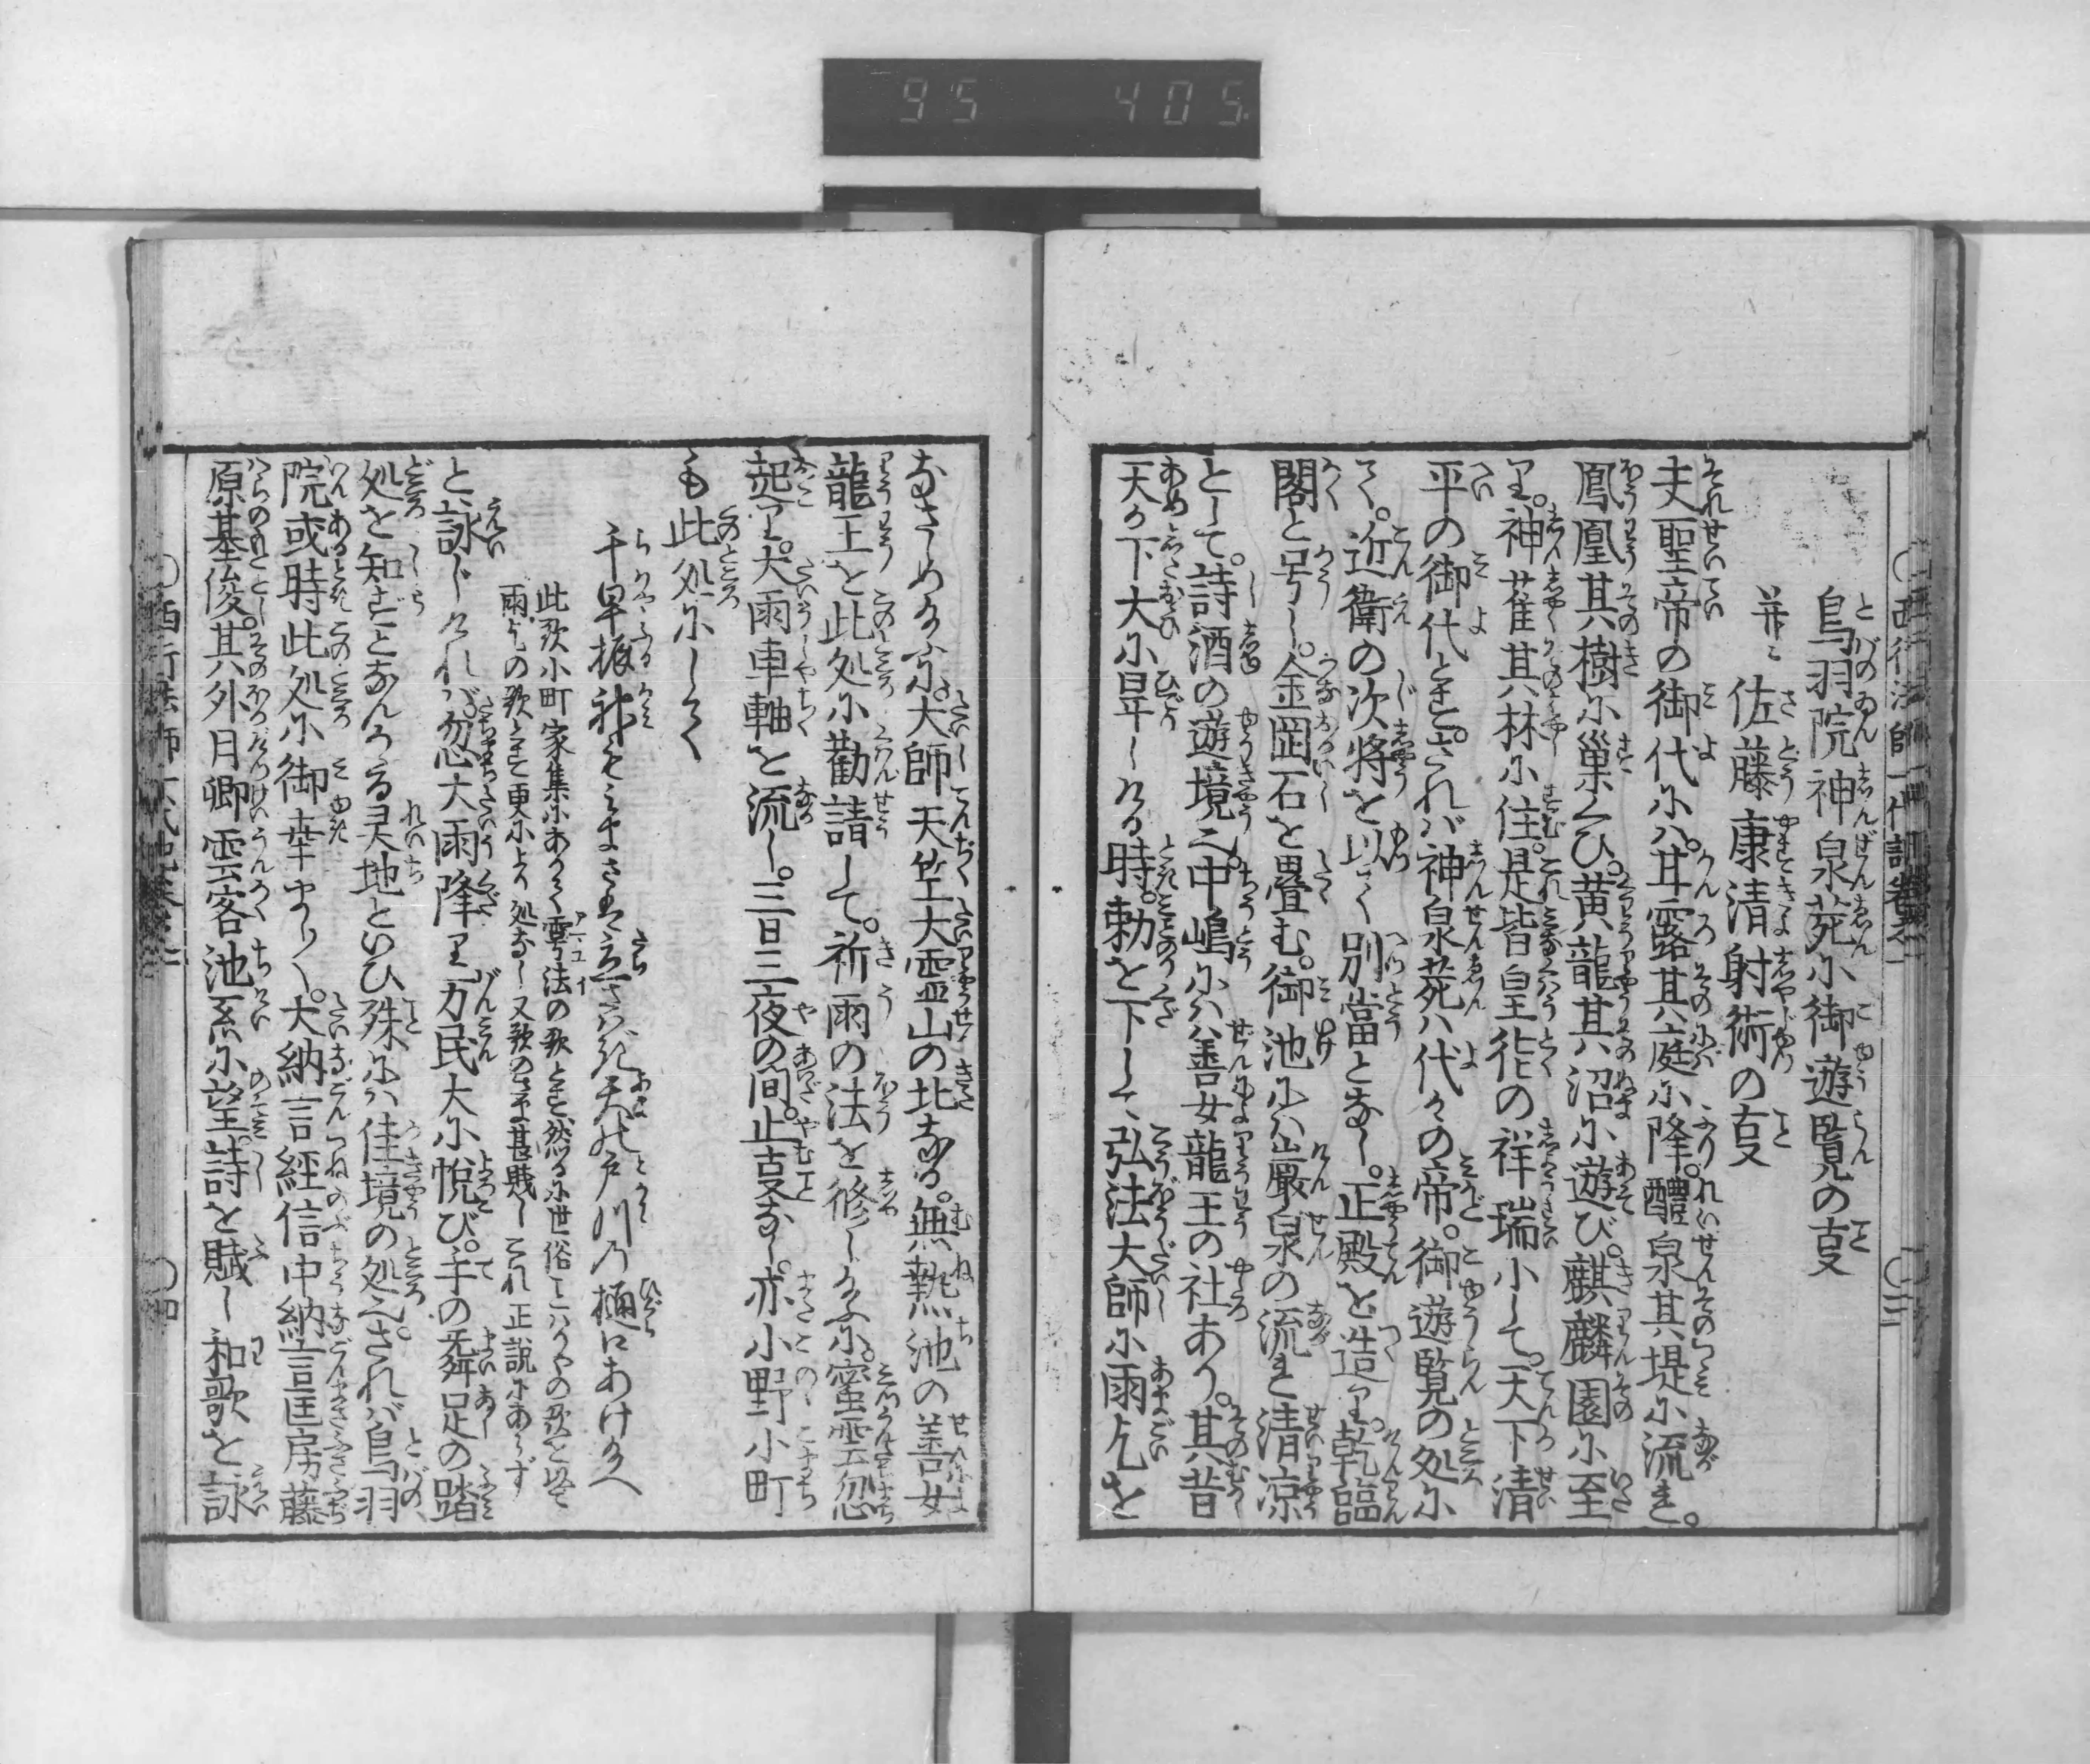 95 405
鳥羽院神泉苑に御遊覧の叓
并ニ佐藤康清射術の叓
夫聖帝の御代にハ。甘露其庭に降。醴泉其堤に流る。
鳳凰其樹に巣くひ。黄龍其沼に遊び。麒麟園に至
り。神雀其林に住。是皆皇徳の祥瑞にして。天下清
平の御代とす。されバ神泉苑ハ代々の帝。御遊覧の処に
て。近衛の次将を以て別當となし。正殿を造り。乾臨
閣と号し。金岡石を畳む。御池にハ巌泉の流る清凉
として。詩酒の遊境也。中嶋にハ善女龍王の社あり。其昔
天が下大に旱しける時。勅を下して弘法大師に雨乞を
なさしめ給ふに。大師天竺大霊山の北なる。無熱池の善女
龍王を此処に勧請して。祈雨の法を修し給ふに。蜜雲忽
起り。大雨車軸を流し。三日三夜の間。止叓なし。亦小野小町
も此処にして
千早振神もみまさば立さばき天の戸川の樋口あけ給へ
此歌小町家集にありて雩法の歌とす然るに世俗ことハりやの歌を以て
雨乞の歌とす更により処なし又歌のさま甚賤しこれ正説にあらず
と詠じけれバ忽大雨降り万民大に悦び。手の舞足の踏
処を知ずとなんかゝる灵地といひ殊にハ佳境の処也。されバ鳥羽
院或時此処に御幸なりし。大納言経信中納言匡房藤
原基俊。其外月卿雲客池水に望。詩を賦し和歌を詠
西行法師一代記巻之二
〇四